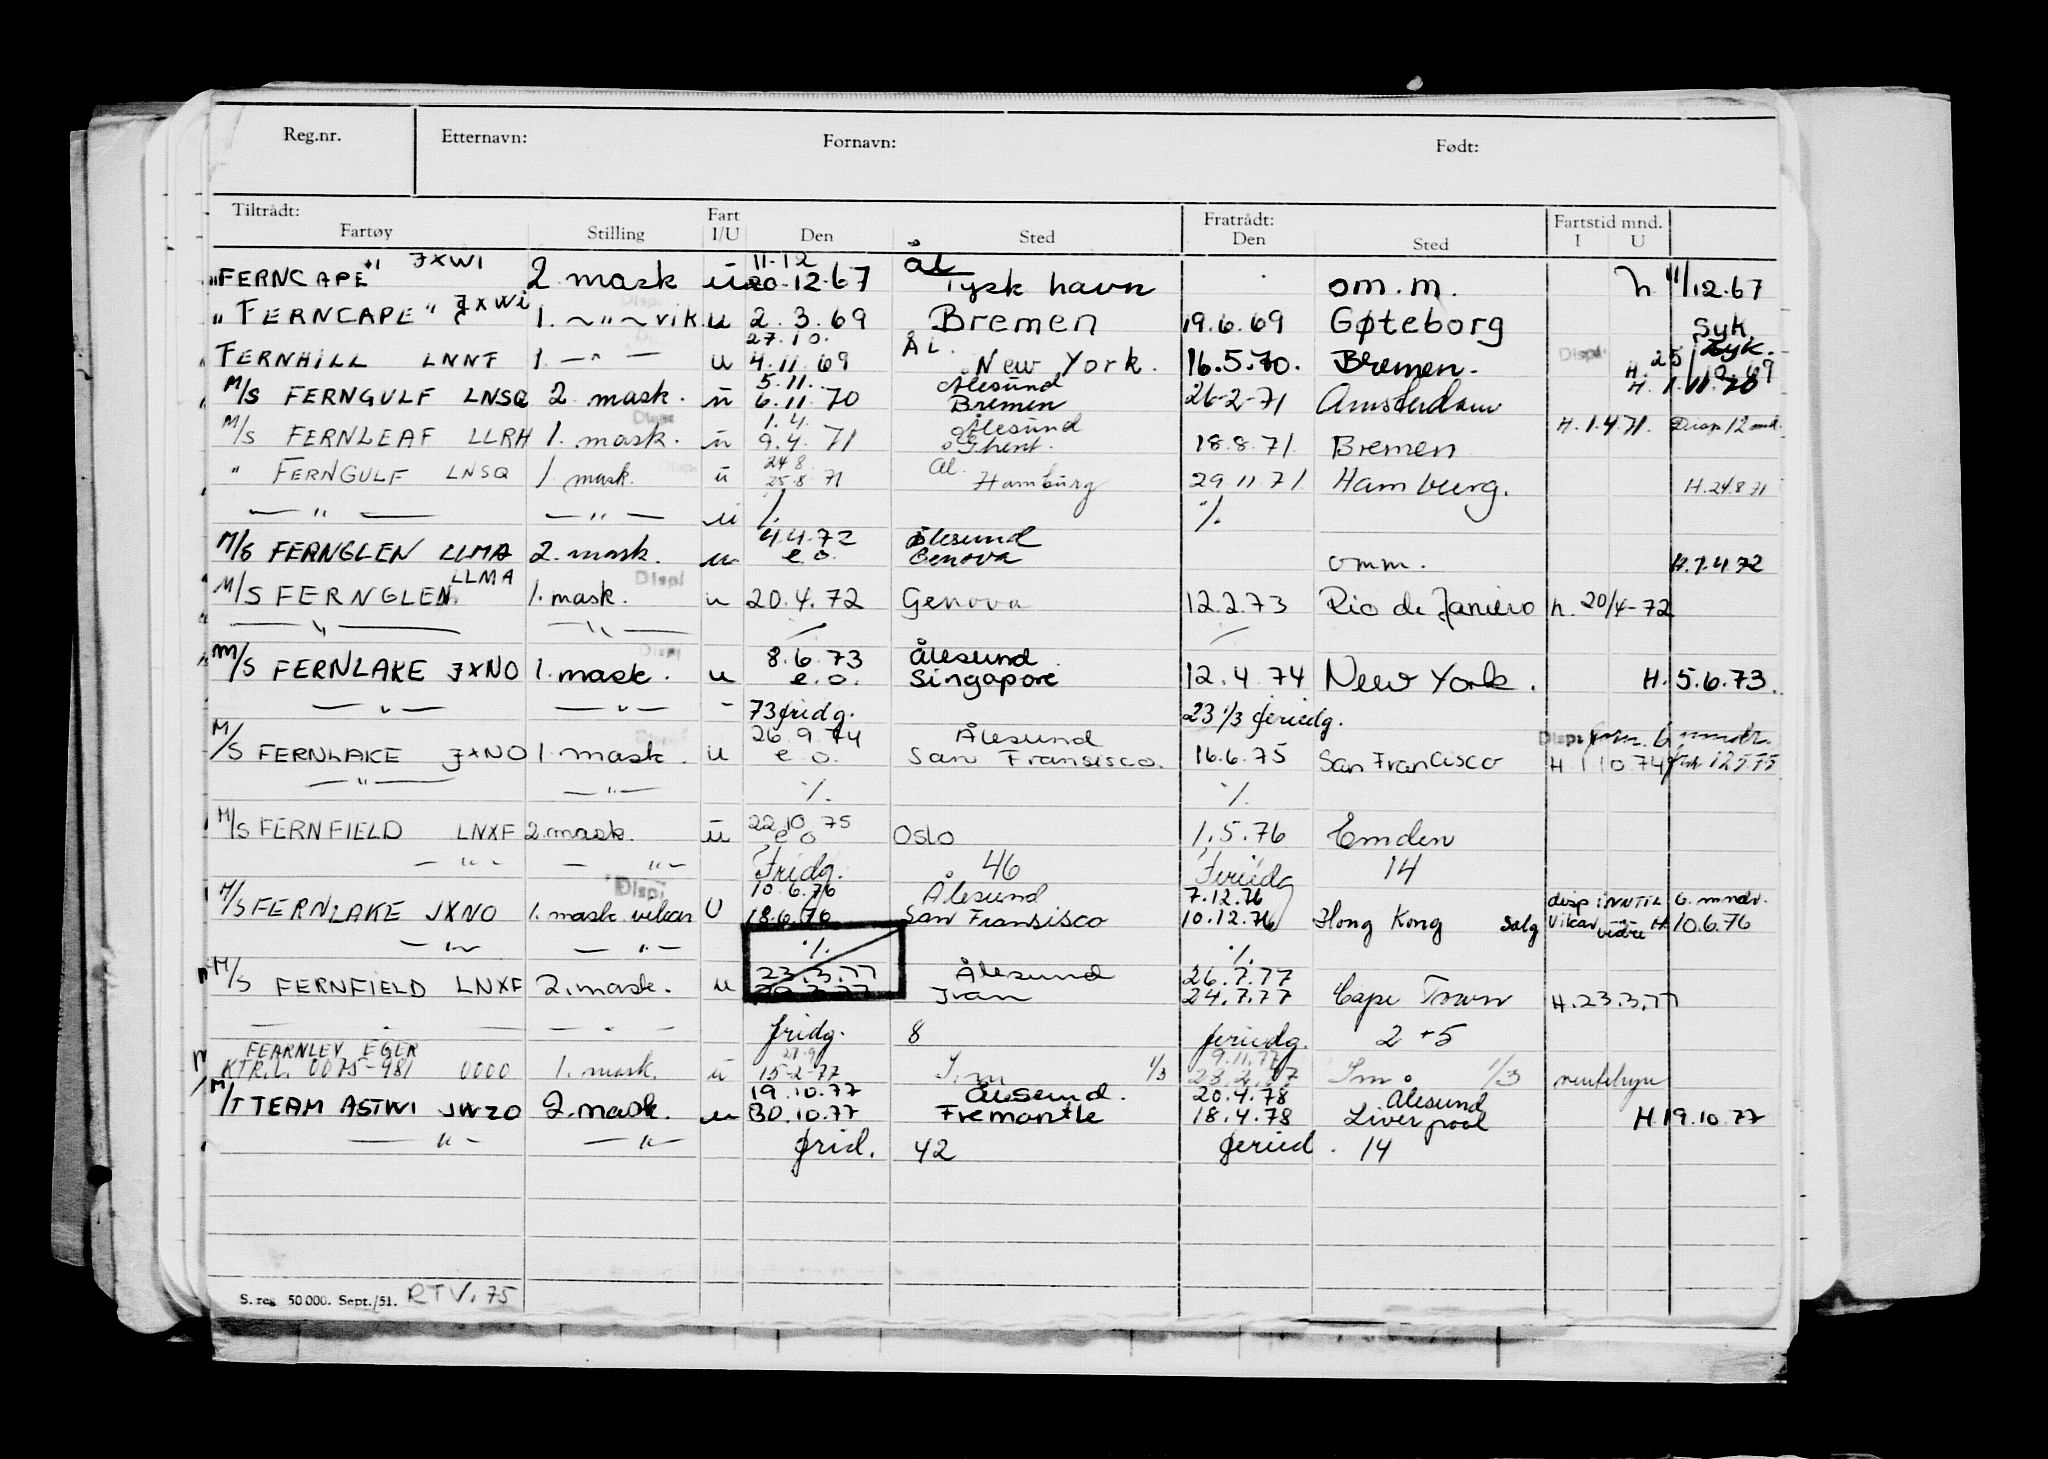 Reg.nr. Etternavn: Fornavn: Født:
Tiltrådt: Fart Fratrådt: Fartstid mnd.
Fartøy Stilling I/U Den Sted Den Sted I U
11-12 ÅL
"FERNCAPE" JXWI 2. mask ü 20-12-67 Tysk havn om.m. h 11/12.67
"FERNCAPE" JXWI 1. ~ " ~ vik. u 2.3.69 Bremen 19.6.69 Gøteborg Syk
27.10. ÅL.
FERNHILL LNNT 1. — " — u 4.11.69 New York. 16.5.70. Bremen. Displ H. 25/10.69 Syk.
5.11. Ålesund
M/S FERNGULF LNSQ 2. mask. ü 6.11.70 Bremen 26-2-71 Amsterdam H. 1.11.70
Displ 1.4. Ålesund H.1.4.71. Disp 12 md.
M/S FERNLEAF LLRH 1. mask. ü 9.4.71 Ghent. 18.8.71. Bremen
24.8. Ål.
" FERNGULF LNSQ 1. mask. ü 25.8.71 Hamburg 29.11.71. Hamburg. H.24.8.71
— " — — " — u ./. ./.
4.4.72 Ålesund
M/S FERNGLEN LLMA 2. mask. u e.o. Genova omm. H.1.4.72
M/S FERNGLEN LLMA 1. mask. Displ u 20.4.72 Genova 12.2.73 Rio de Janiero h. 20/4-72
— " — — " —
8.6.73 Ålesund
M/S FERNLAKE JXNO 1. mask. Displ u e.o. Singapore 12.4.74 New York. H. 5.6.73.
— " — — " — - 73 fridg. 23 1/3 feriedg.
26.9.74 Ålesund Displ 6 mndr.
M/S FERNLAKE JXNO 1. mask. u e.o. San Fransisco. 16.6.75 San Francisco H.1.10.74 12.5.75
— " — — " — ./. ./.
22.10.75
M/S FERNFIELD LNXF 2. mask. ü e o Oslo 1.5.76 Emden
— " — — " — Fridg. 46 Feriedg 14
Displ 10.6.76 Ålesund 7.12.76 disp inntil 6. mndr.
M/S FERNLAKE JXNO 1. mask vikar U 18.6.76 San Fransisco 10.12.76 Hong Kong Salg vikar videre H. 10.6.76
— " — — " — ./. ./.
23.3.77 Ålesund 26.7.77
M/S FERNFIELD LNXF 2. mask. u Iran 24.7.77 Cape Town H.23.3.77
— " — — " — fridg. 8 feriedg. 2 + 5
FEARNLEY EGER 9.11.77
KTR.L. 0075-981 0000 1. mask. ü 15-2-77 1/3 1/3
19.10.77 Ålesund. 20.4.78 Ålesund
M/T TEAM ASTWI JWZO 2. mask. u 30.10.77 Fremantle 18.4.78 Liverpool H.19.10.77
— " — — " — frid. 42 feried. 14
S. reg. 50 000. Sept./51. RTV. 75